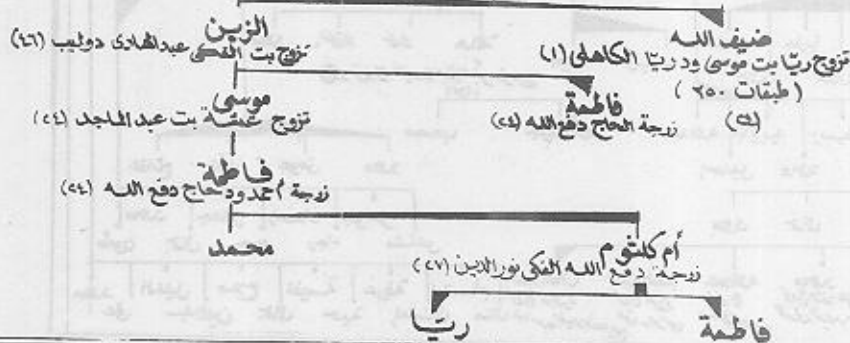 ضيف الله
تزوج ريّا بت موسى ود ريّا الكاهلى (١)
( طبقات ٢٥٠ )
الزين
تزوج بت الفكى عبد الهادى دوليب (٤٦)
فاطمة
زوجة الحاج دفع الله (٢٤)
موسى
تزوج بت عبد الماجد (٢٤)
فاطمة
زوجة أحمد ود حاج دفع الله (٢٤)
أم كلثوم
زوجة دفع الله الفكى نور الدين (٢٧)
محمد
فاطمة
ريّا